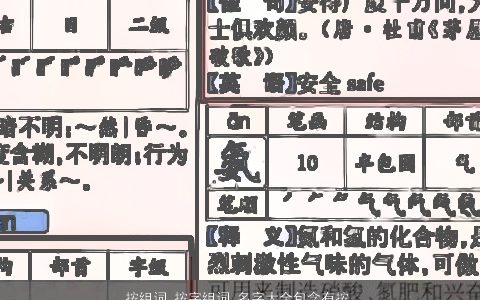 日 二级
暗不明:~然|昏~。
度含糊,不明朗:行为
~|关系~。
构 部首 字级
句】安得广厦千万间,
士俱欢颜。(唐·杜甫《茅屋
破歌》)
【英 语】安全 safe
ān 笔画 结构 部首
氨 10 半包围 气
笔顺
【释 义】氮和氢的化合物,是
烈刺激性气味的气体,可做
可用来制造硝酸、氮肥和兴奋
按组词_按字组词_名字大全包含有按